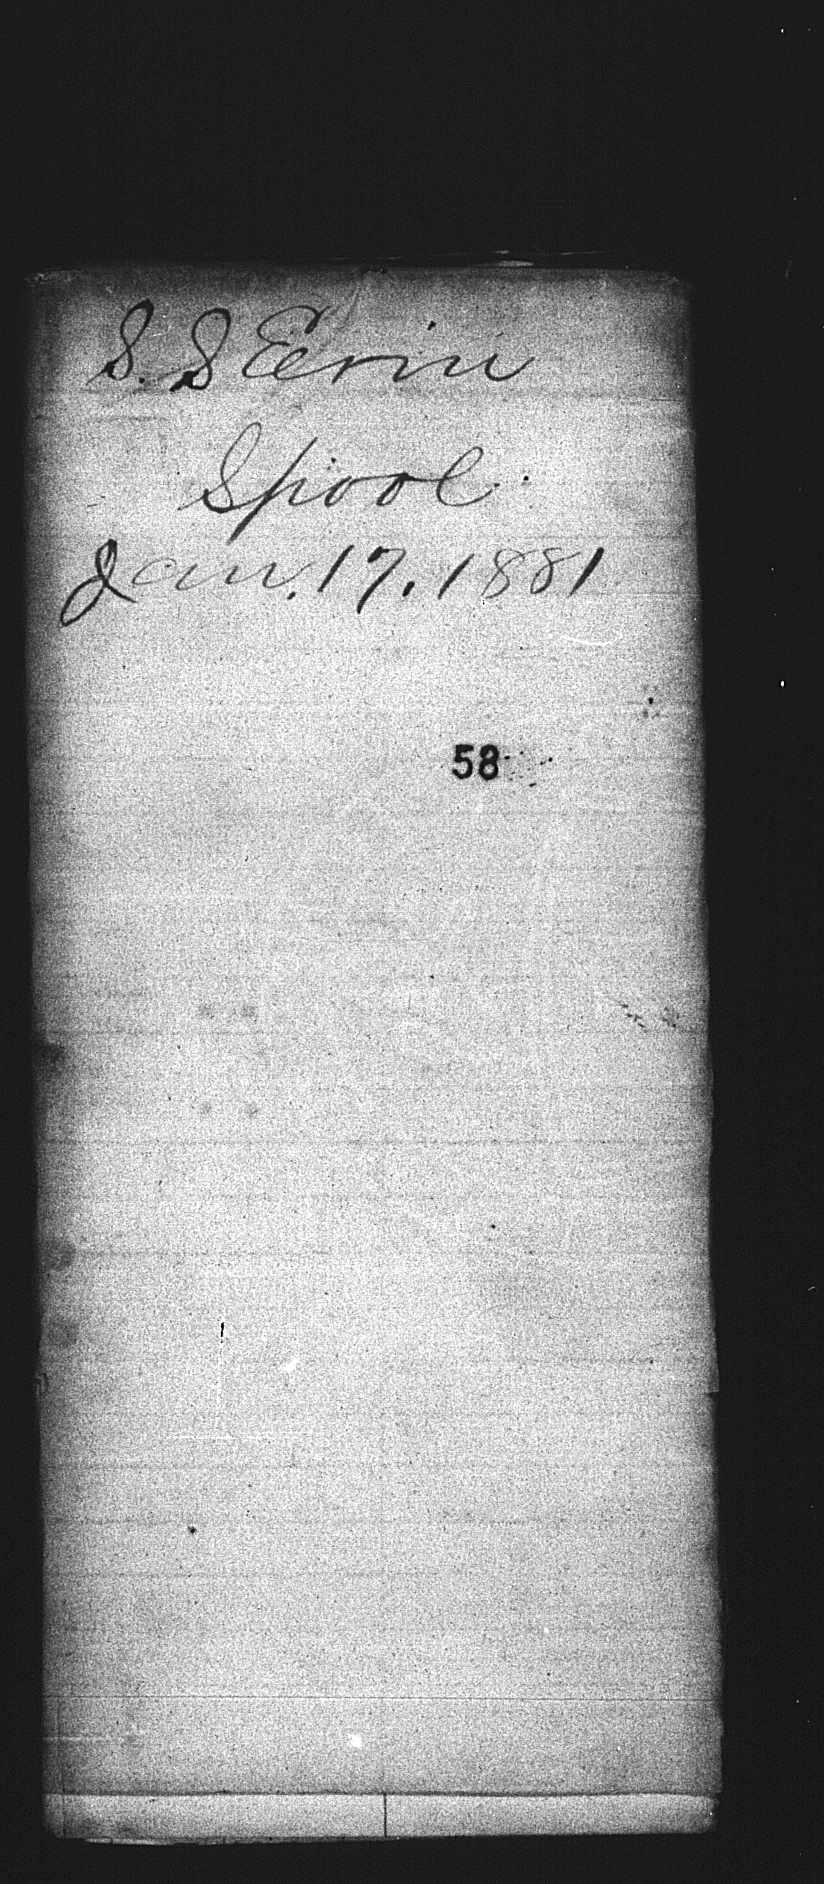 S. S Erin
Spool.
Jan. 17. 1881
58